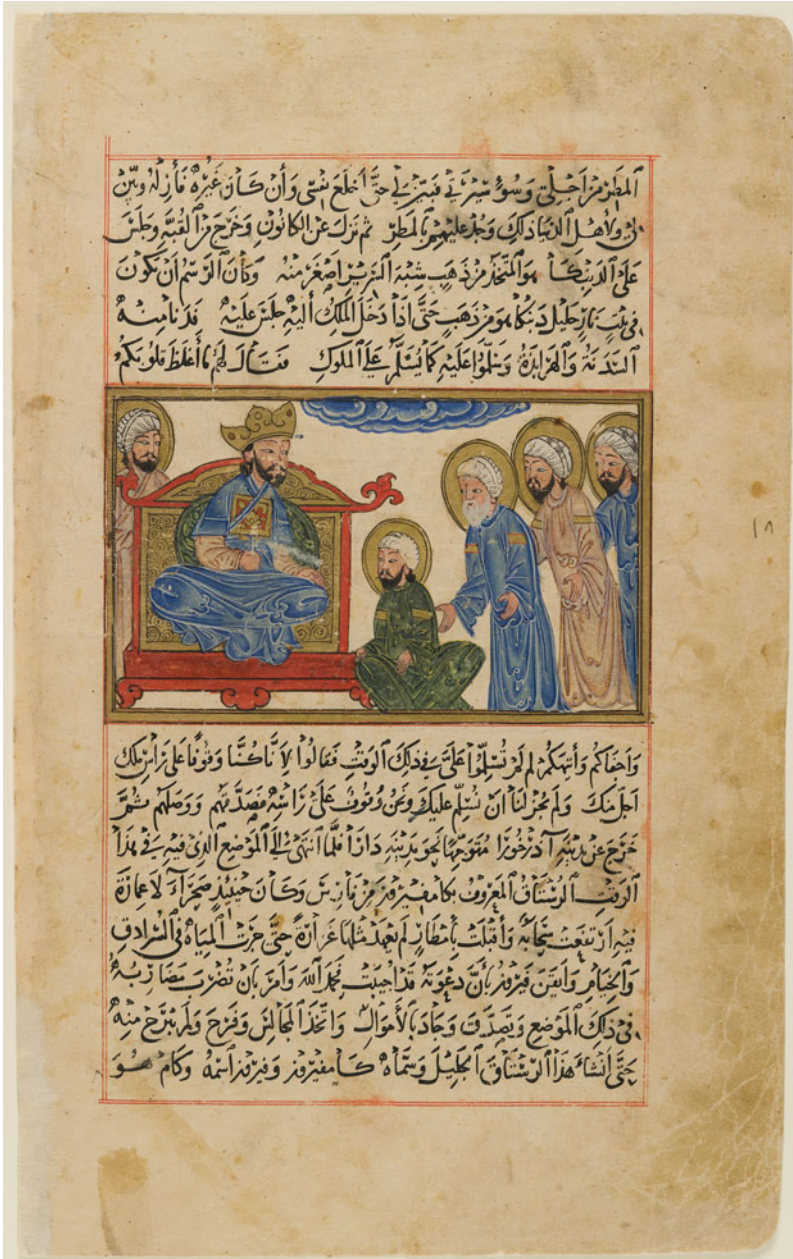 المطر من اجلى وسوء سيرتى فبين لى حتى اخلع نفسى وأن كان غيره فأزله وبين
لى ولأهل الدنيا ذلك وجد عليهم بالمطر ثم نزل عن الكانون وخرج من القبه وجلس
على الدنبكا هو المتخذ من ذهب شبه السرير اصغر منه وكان الرسم أن يكون
فى بيت نار جليل دنبكا هو من ذهب حتى اذا دخل الملك أليه جلس عليه فدنا منه
السدنة والهرابذة وسلموا عليه كما يسلم على الملوك فقال لهم ما أغلظ قلوبكم
١٨
واجفاكم وأتهمكم لم لم تسلموا على فى ذلك الوقت فقالوا لأنا كنا وقوفا على رأس ملك
اجل منك ولم يجز لنا ان نسلم عليك ونحن وقوف على رأسه فصدقهم ووصلهم ثم
خرج عن مدينه آذرخورا متوجها نحو مدينه دارا فلما انتهى الى الموضع الذى فيه فى هذا
الوقت الرستاق المعروف بكامفيروز من فارس وكان حينئذ صحراء لا عمارة
فيه ارتفعت سحابة وأقبلت بأمطار لم يعهد مثلها غزارة حتى جرت المياه فى السرادق
والخيام وايقن فيروز بأن دعوته قد اجيبت فحمد الله وامر بان تضرب مضاربه
فى ذلك الموضع وتصدق وجاد بالأموال واتخذ المجالس وفرح ولم يبرح منه
حتى انشاء هذا الرستاق الجليل وسماه كامفيروز وفيروز اسمه وكام هو